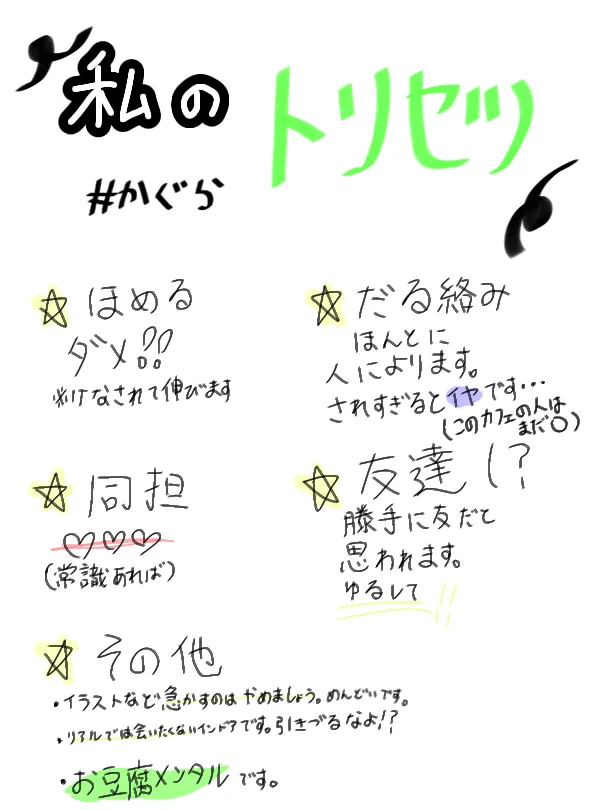 私のトリセツ
#かぐら
☆ほめる
ダメ!!
※けなされて伸びます
☆だる絡み
ほんとに
人によります。
されすぎるとイヤです…
(このカフェの人は
まだ〇)
☆同担
♡♡♡
(常識あれば)
☆友達!?
勝手に友だと
思われます。
ゆるして
☆その他
・イラストなど急かすのはやめましょう。めんどいです。
・リアルでは会いたくないインドアです。引きづるなよ!?
・お豆腐メンタルです。